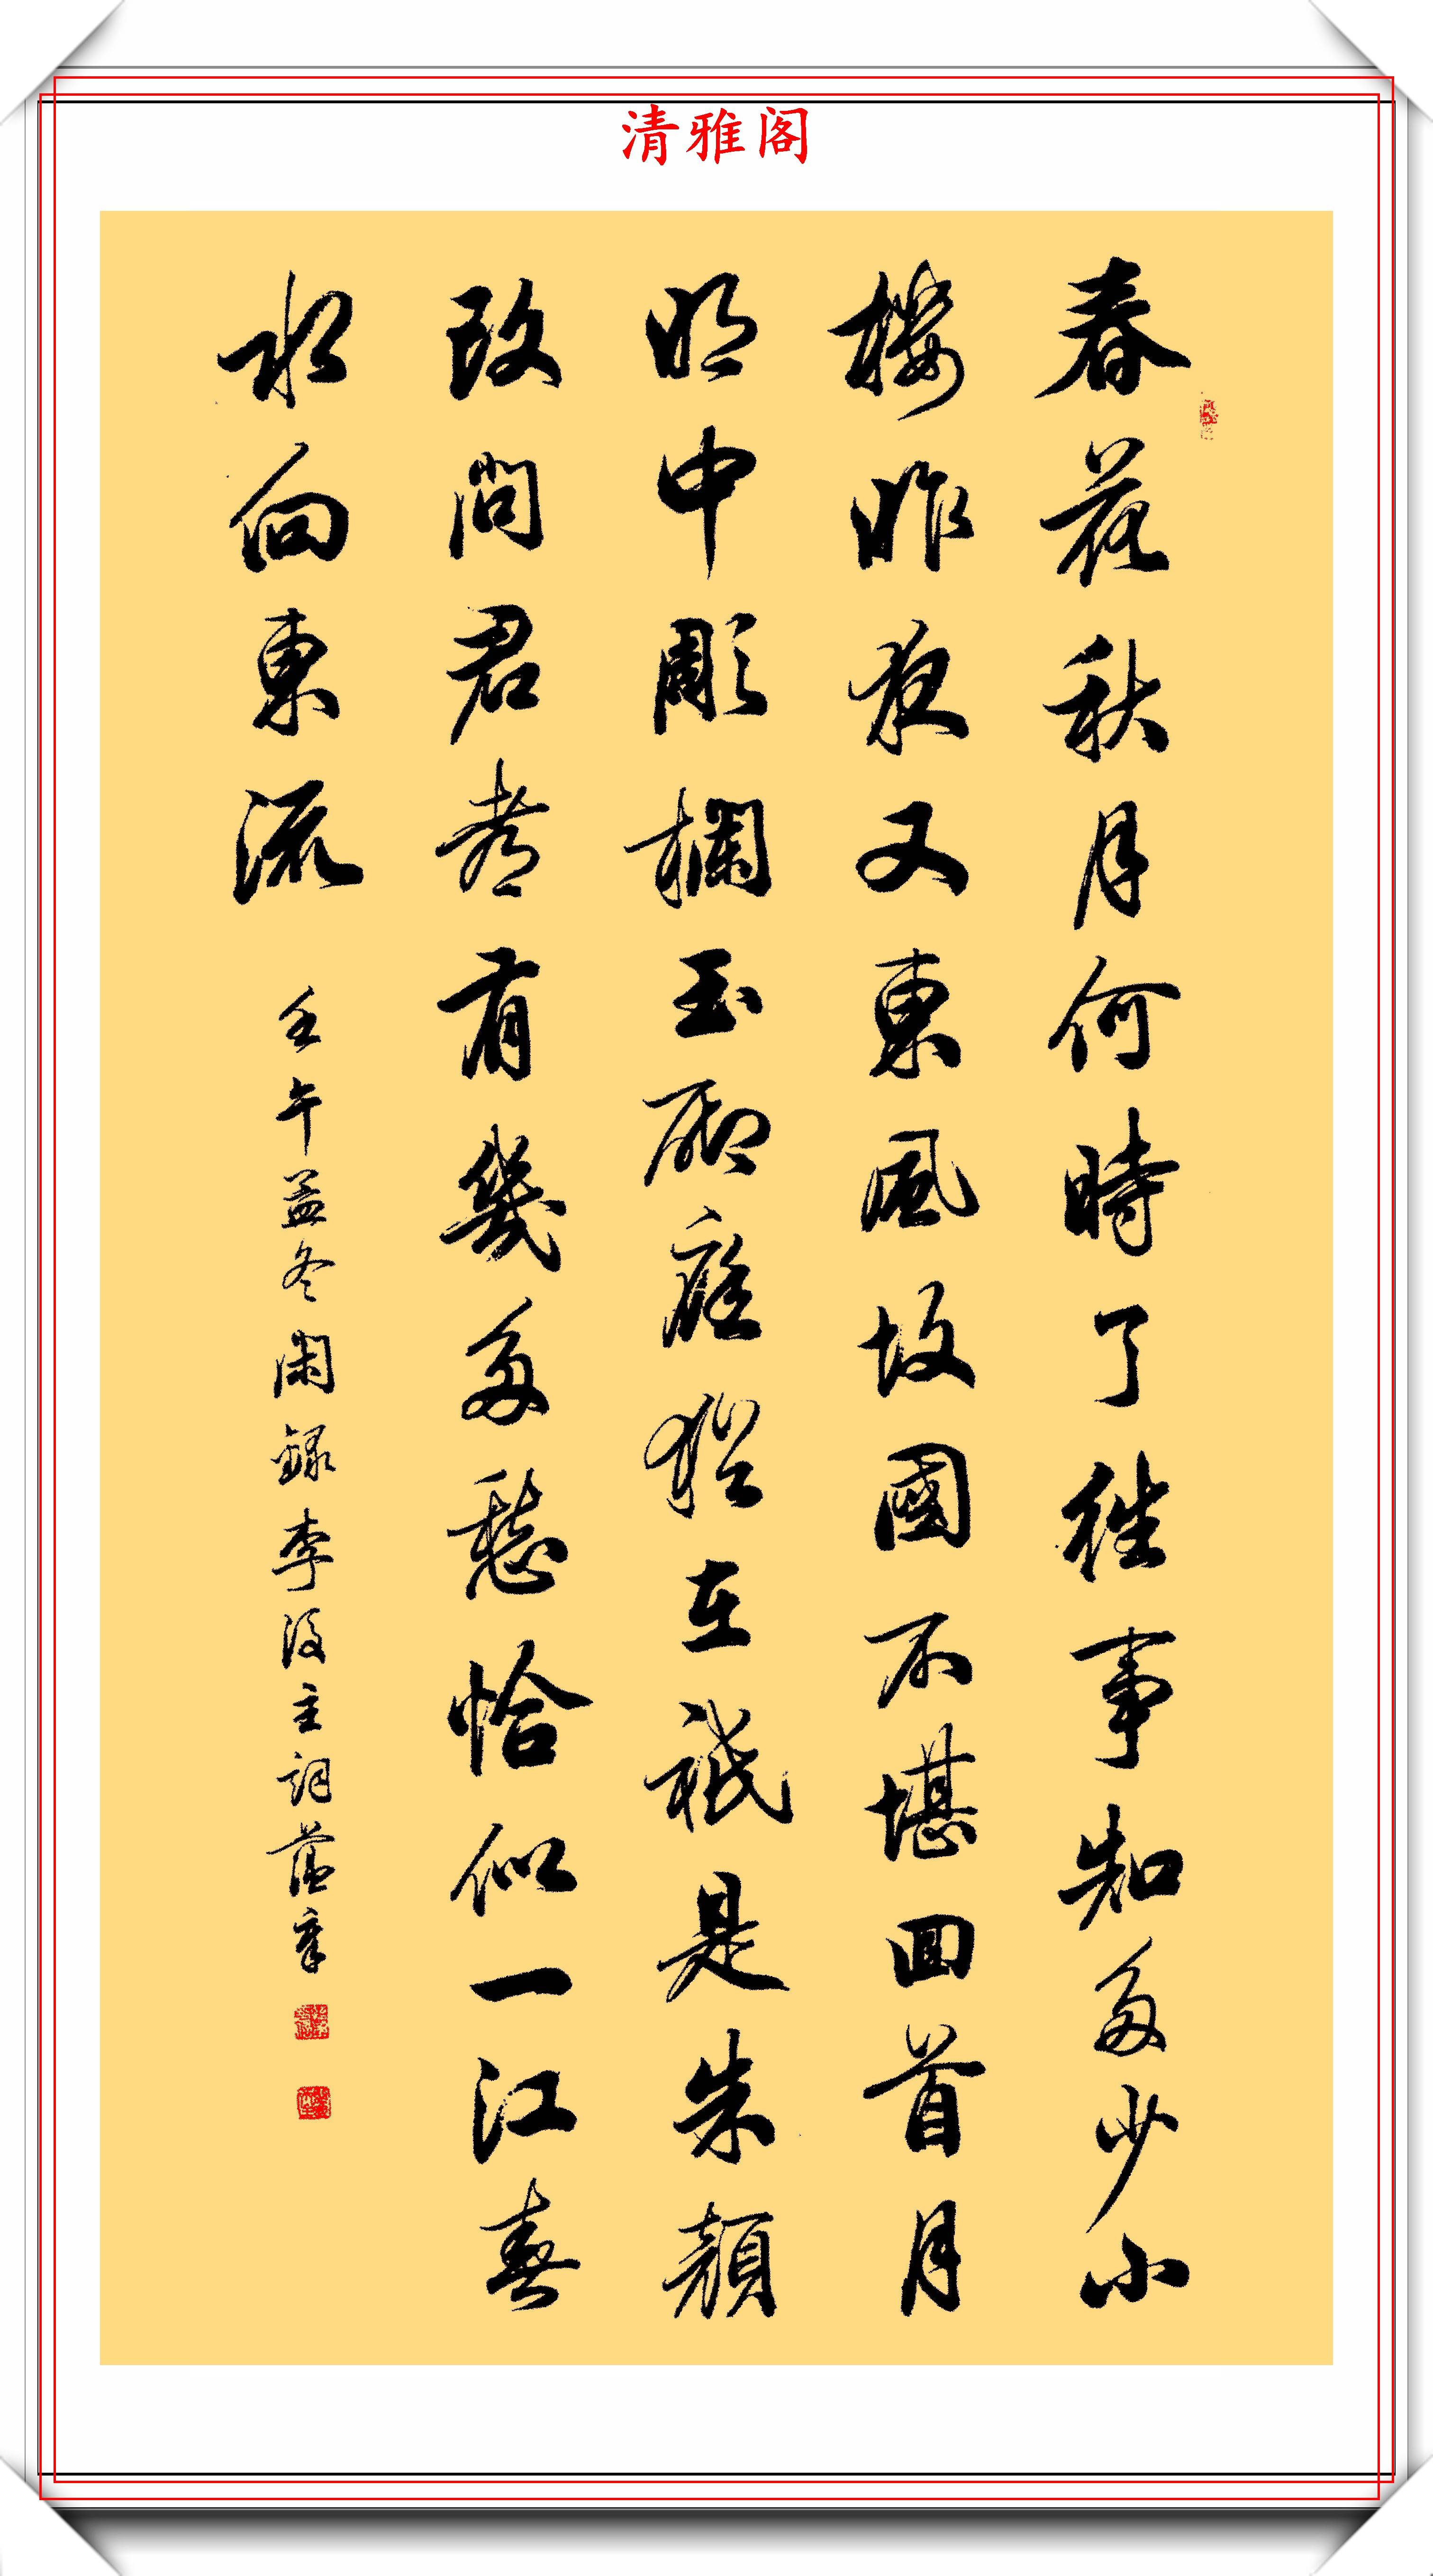 清雅阁
春花秋月何時了往事知多少小
樓昨夜又東風故國不堪回首月
明中彫欄玉砌應猶在祇是朱顔
改問君都有幾多愁恰似一江春
水向東流
壬午孟冬閑録李後主詞